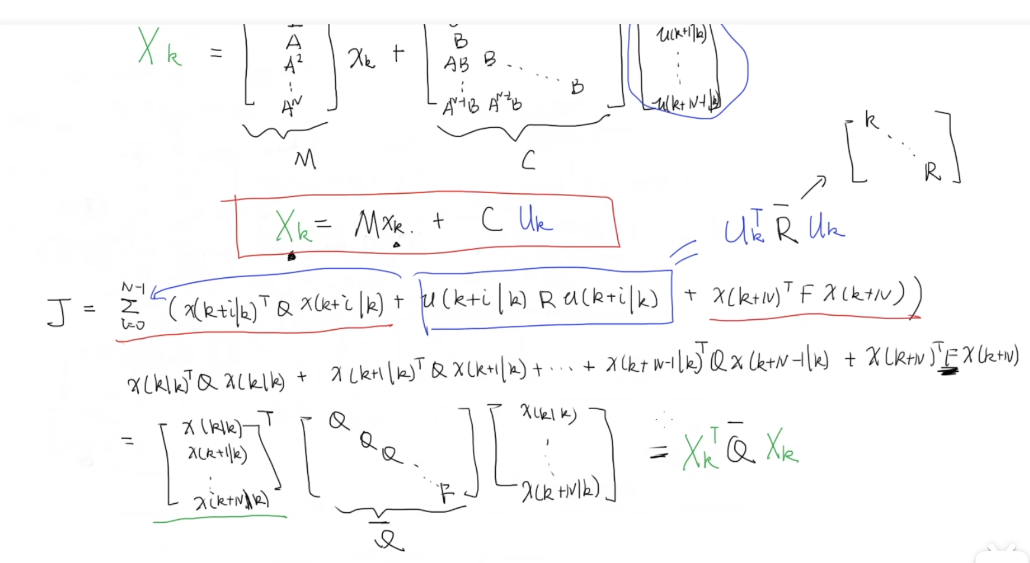 X_k = [ I A A² ⋮ A^N ] x_k + [ B AB B ⋱ B ⋮ A^{N-1}B A^{N-2}B ] [ u(k+1|k) ⋮ u(k+N-1|k) ]
M C
[ R ⋱ R ]
X_k = M x_k. + C U_k
U_k^T R̄ U_k
J = Σ_{i=0}^{N-1} ( x(k+i|k)^T Q x(k+i|k) + u(k+i|k) R u(k+i|k) + x(k+N)^T F x(k+N) )
x(k|k)^T Q x(k|k) + x(k+1|k)^T Q x(k+1|k) + ⋯ + x(k+N-1|k)^T Q x(k+N-1|k) + x(k+N)^T F x(k+N)
= [ x(k|k) x(k+1|k) ⋮ x(k+N|k) ]^T [ Q Q Q ⋱ F ] [ x(k|k) ⋮ x(k+N|k) ] = X_k^T Q̄ X_k
Q̄